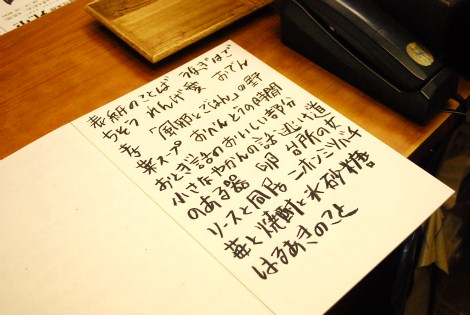 表紙のことば うさぎはで
ちそう れんげ愛 おでん
考 「風邪とごはん」の野
菜スープ おべんとうの時間
おとぎ話のおいしい部分
小さなやかんの話 近しい道
のある器 卵 台所のオ
ソースと同居 ニホンミツバチ
苺と焼酎と氷砂糖
はるあきのこと